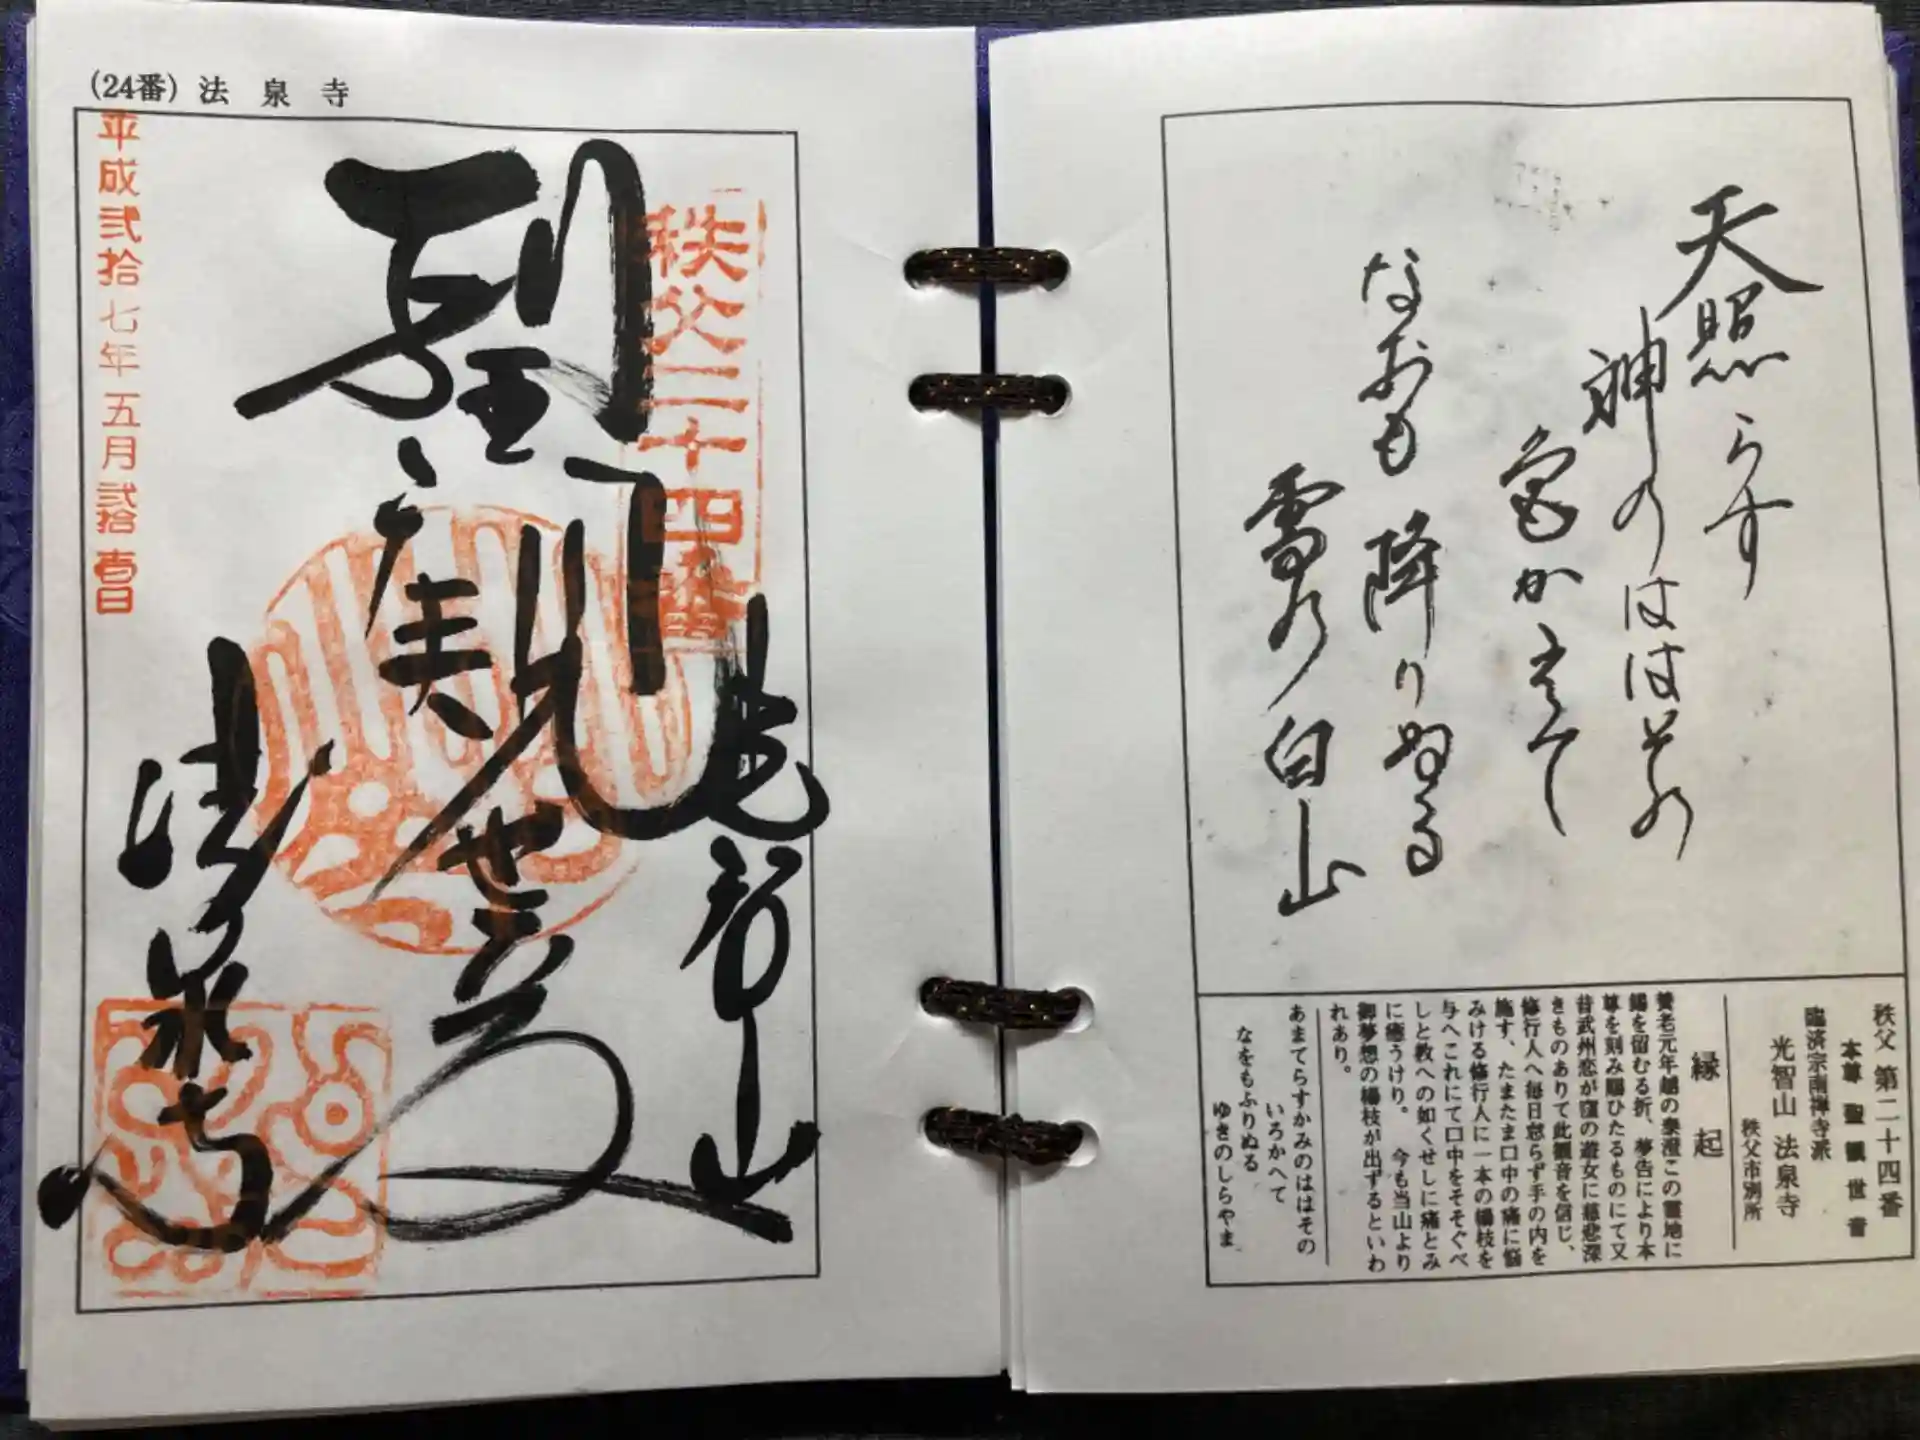 (24番) 法泉寺
平成弐拾七年五月弐拾壱日
秩父二十四番
光智山
聖観世音
法泉寺
天照らす
神のははその
色かえて
なおも降りぬる
雪の白山
秩父第二十四番
本尊 聖観世音
臨済宗南禅寺派
光智山 法泉寺
秩父市別所
縁起
養老元年越の泰澄この霊地に
錫を留むる折、夢告により本
尊を刻み賜ひたるものにて又
昔武州恋が窪の遊女に慈悲深
きものありて此観音を信じ、
修行人へ毎日怠らず手の内を
施す、たまたま口中の痛に悩
みける修行人に一本の楊枝を
与へこれにて口中をそそぐべ
しと教への如くせしに痛とみ
に癒うけり。今も当山より
御夢想の楊枝が出ずるといわ
れあり。
あまてらすかみのははその
いろかへて
なをもふりぬる
ゆきのしらやま